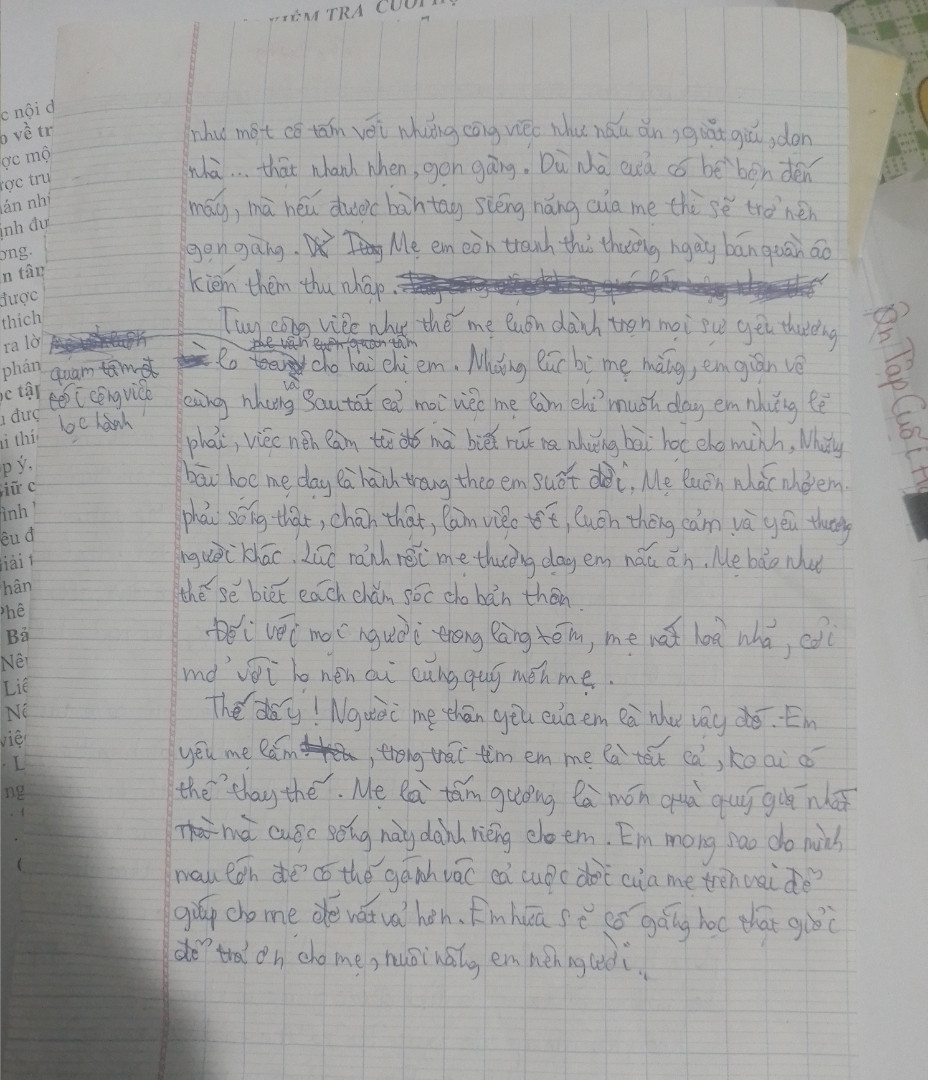 KIỂM TRA CUỐI
như một cô tấm với những công việc như nấu ăn, giặt giũ, dọn
nhà... thật nhanh nhẹn, gọn gàng. Dù nhà cửa có bề bộn đến
mấy, mà nếu được bàn tay siêng năng của mẹ thì sẽ trở nên
gọn gàng. Mẹ em còn tranh thủ thường ngày bán quần áo
kiếm thêm thu nhập.
Tuy công việc như thế mẹ luôn dành trọn mọi sự yêu thương
mẹ vẫn luôn quan tâm
lo cho hai chị em. Những lúc bị mẹ mắng, em giận vô
quan tâm
tới công việc
học hành
cùng nhưng sau tất cả mọi việc mẹ làm chỉ muốn dạy em những lẽ
phải, việc nên làm từ đó mà biết rút ra những bài học cho mình. Những
bài học mẹ dạy là hành trang theo em suốt đời. Mẹ luôn nhắc nhở em
phải sống thật, chân thật, làm việc tốt, luôn thông cảm và yêu thương
người khác. Lúc rảnh rỗi mẹ thường dạy em nấu ăn. Mẹ bảo như
thế sẽ biết cách chăm sóc cho bản thân
Đối với mọi người trong làng xóm, mẹ rất hoà nhã, cởi
mở với họ nên ai cũng quý mến mẹ.
Thế đấy! Người mẹ thân yêu của em là như vậy đó. Em
yêu mẹ lắm, trong trái tim em mẹ là tất cả, ko ai có
thể thay thế. Mẹ là tấm gương là món quà quý giá nhất
mà cuộc sống này dành riêng cho em. Em mong sao cho mình
mau lớn để có thể gánh vác cả cuộc đời của mẹ trên vai để
giúp cho mẹ đỡ vất vả hơn. Em hứa sẽ cố gắng học thật giỏi
để trả ơn cho mẹ, nuôi nấng em nên người.
Ôn Tập Cuối